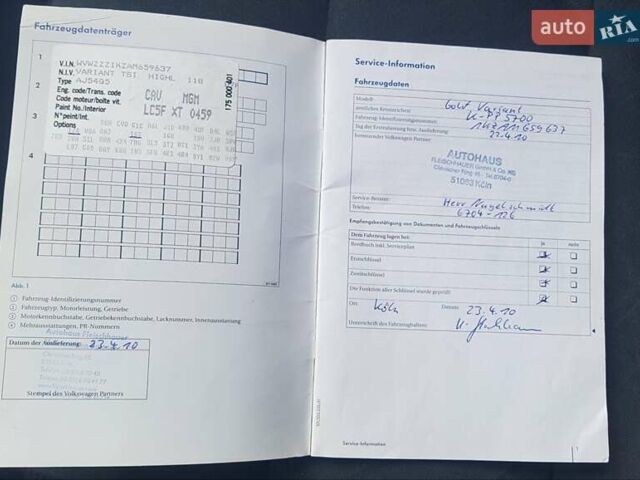 auto RIA
.com
Fahrzeugdatenträger
1
V.I.N. WVWZZZ1KZAM659637
N.I.V. VARIANT TSI HIGHL 118
Type AJ54Q5
Eng. code/Trans. code
Code moteur/boîte vit. CAV MGM
Paint No./Interior
N°peint/Int. LC5F XT 0459
Options
175 000 401
2
3
4
Abb. 1
① Fahrzeug-Identifizierungsnummer
② Fahrzeugtyp, Motorleistung, Getriebe
③ Motorkennbuchstabe, Getriebekennbuchstabe, Lacknummer, Innenausstattung
④ Mehrausstattungen, PR-Nummern
Autohaus Fleischhauer
Datum der Auslieferung: 23.4.10
Stempel des Volkswagen Partners
Service-Information
Fahrzeugdaten
Modell: Golf Variant
amtliches Kennzeichen: K-PP 5700
Fahrzeug-Identifizierungsnummer:
Tag der Erstzulassung bzw. Auslieferung: 22.4.10
betreuender Volkswagen Partner
AUTOHAUS
FLEISCHHAUER GmbH & Co. KG
51063 Köln
Service-Berater: Herr Nagelschmidt
Telefon: 6704-126
Empfangsbestätigung von Dokumenten und Fahrzeugschlüsseln
Dem Fahrzeug lagen bei: ja nein
Bordbuch inkl. Serviceplan
Erstschlüssel
Zweitschlüssel
Die Funktion aller Schlüssel wurde geprüft
Ort: Köln Datum: 23.4.10
Unterschrift des Fahrzeughalters:
Service-Information